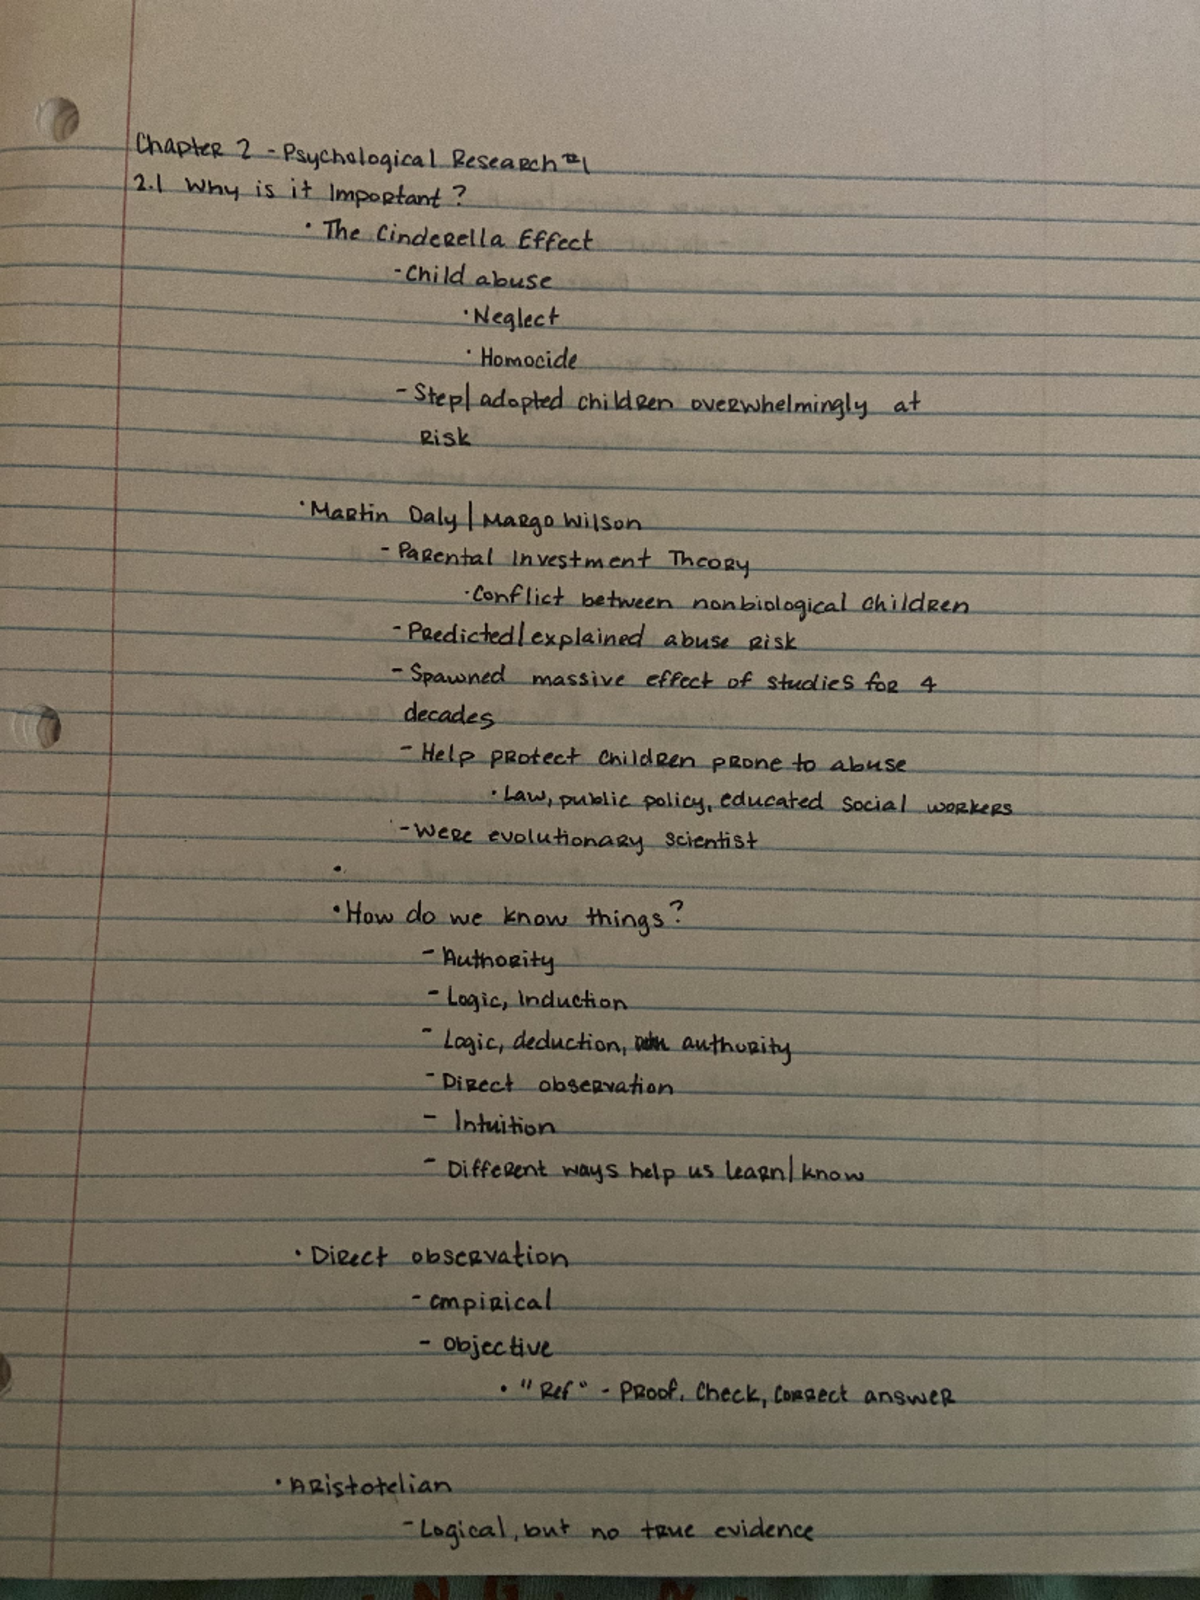 Chapter 2 - Psychological Research #1
2.1 Why is it Important?
• The Cinderella Effect
- Child abuse
• Neglect
• Homocide
- Step/adopted children overwhelmingly at
Risk
• Martin Daly | Margo Wilson
- Parental Investment Theory
• Conflict between nonbiological children
- Predicted/explained abuse risk
- Spawned massive effect of studies for 4
decades
- Help protect children prone to abuse
• Law, public policy, educated social workers
- Were evolutionary scientist
•
• How do we know things?
- Authority
- Logic, Induction
- Logic, deduction, authority
- Direct observation
- Intuition
- Different ways help us learn/know
• Direct observation
- empirical
- Objective
• "Ref" - Proof, Check, Correct answer
• Aristotelian
- Logical, but no true evidence